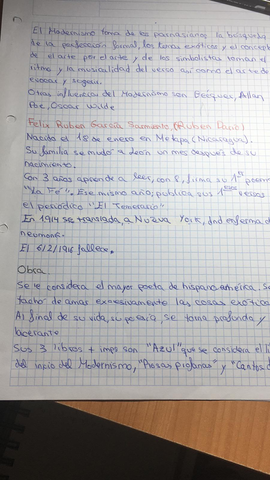 El Modernismo toma de los parnasianos la búsqueda
de la perfección formal, los temas exóticos y el concept
de el arte por el arte y de los simbolistas toman el
ritmo y la musicalidad del verso así como el arte de
evocar y sugerir.
Otras influencias del Modernismo son Bécquer, Allan
Poe, Oscar Wilde
Félix Rubén García Sarmiento (Rubén Darío)
Nacido el 18 de enero en Metapa (Nicaragua).
Su familia se mudó a León un mes después de su
nacimiento.
Con 3 años aprende a leer, con 8, firma su 1er poem
"La Fe". Ese mismo año, publica sus 1eros versos
el periódico "El Termómetro"
En 1914 se translada a Nueva York, enferma d
neumonía.
El 6/2/1916 fallece.
Obra
Se le considera el mayor poeta de hispanoamérica. Se
tachó de amar excesivamente las cosas exótica
Al final de su vida, su poesía, se torna profunda y
lacerante
Sus 3 libros + imps son "Azul" que se considera el l
del inicio del Modernismo, "Prosas profanas" y "Cantos d